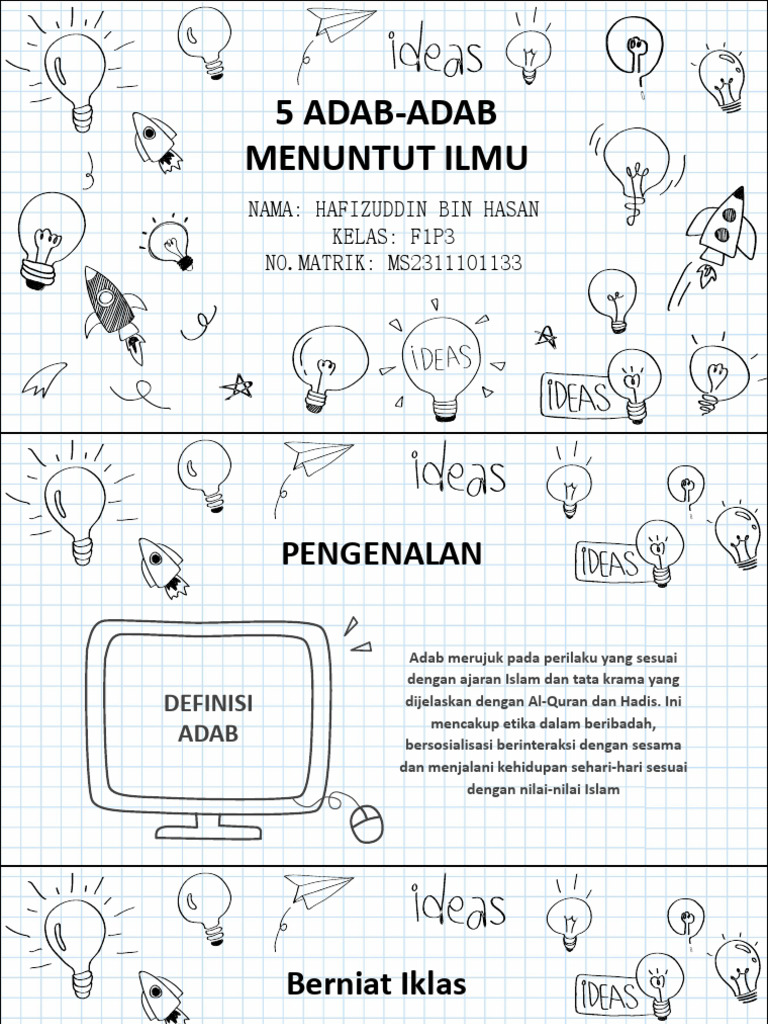 ideas
5 ADAB-ADAB
MENUNTUT ILMU
NAMA: HAFIZUDDIN BIN HASAN
KELAS: F1P3
NO.MATRIK: MS2311101133
iDEAS
iDEAS
ideas
PENGENALAN
iDEAS
DEFINISI
ADAB
Adab merujuk pada perilaku yang sesuai
dengan ajaran Islam dan tata krama yang
dijelaskan dengan Al-Quran dan Hadis. Ini
mencakup etika dalam beribadah,
bersosialisasi berinteraksi dengan sesama
dan menjalani kehidupan sehari-hari sesuai
dengan nilai-nilai Islam
ideas
Berniat Iklas
iDEAS